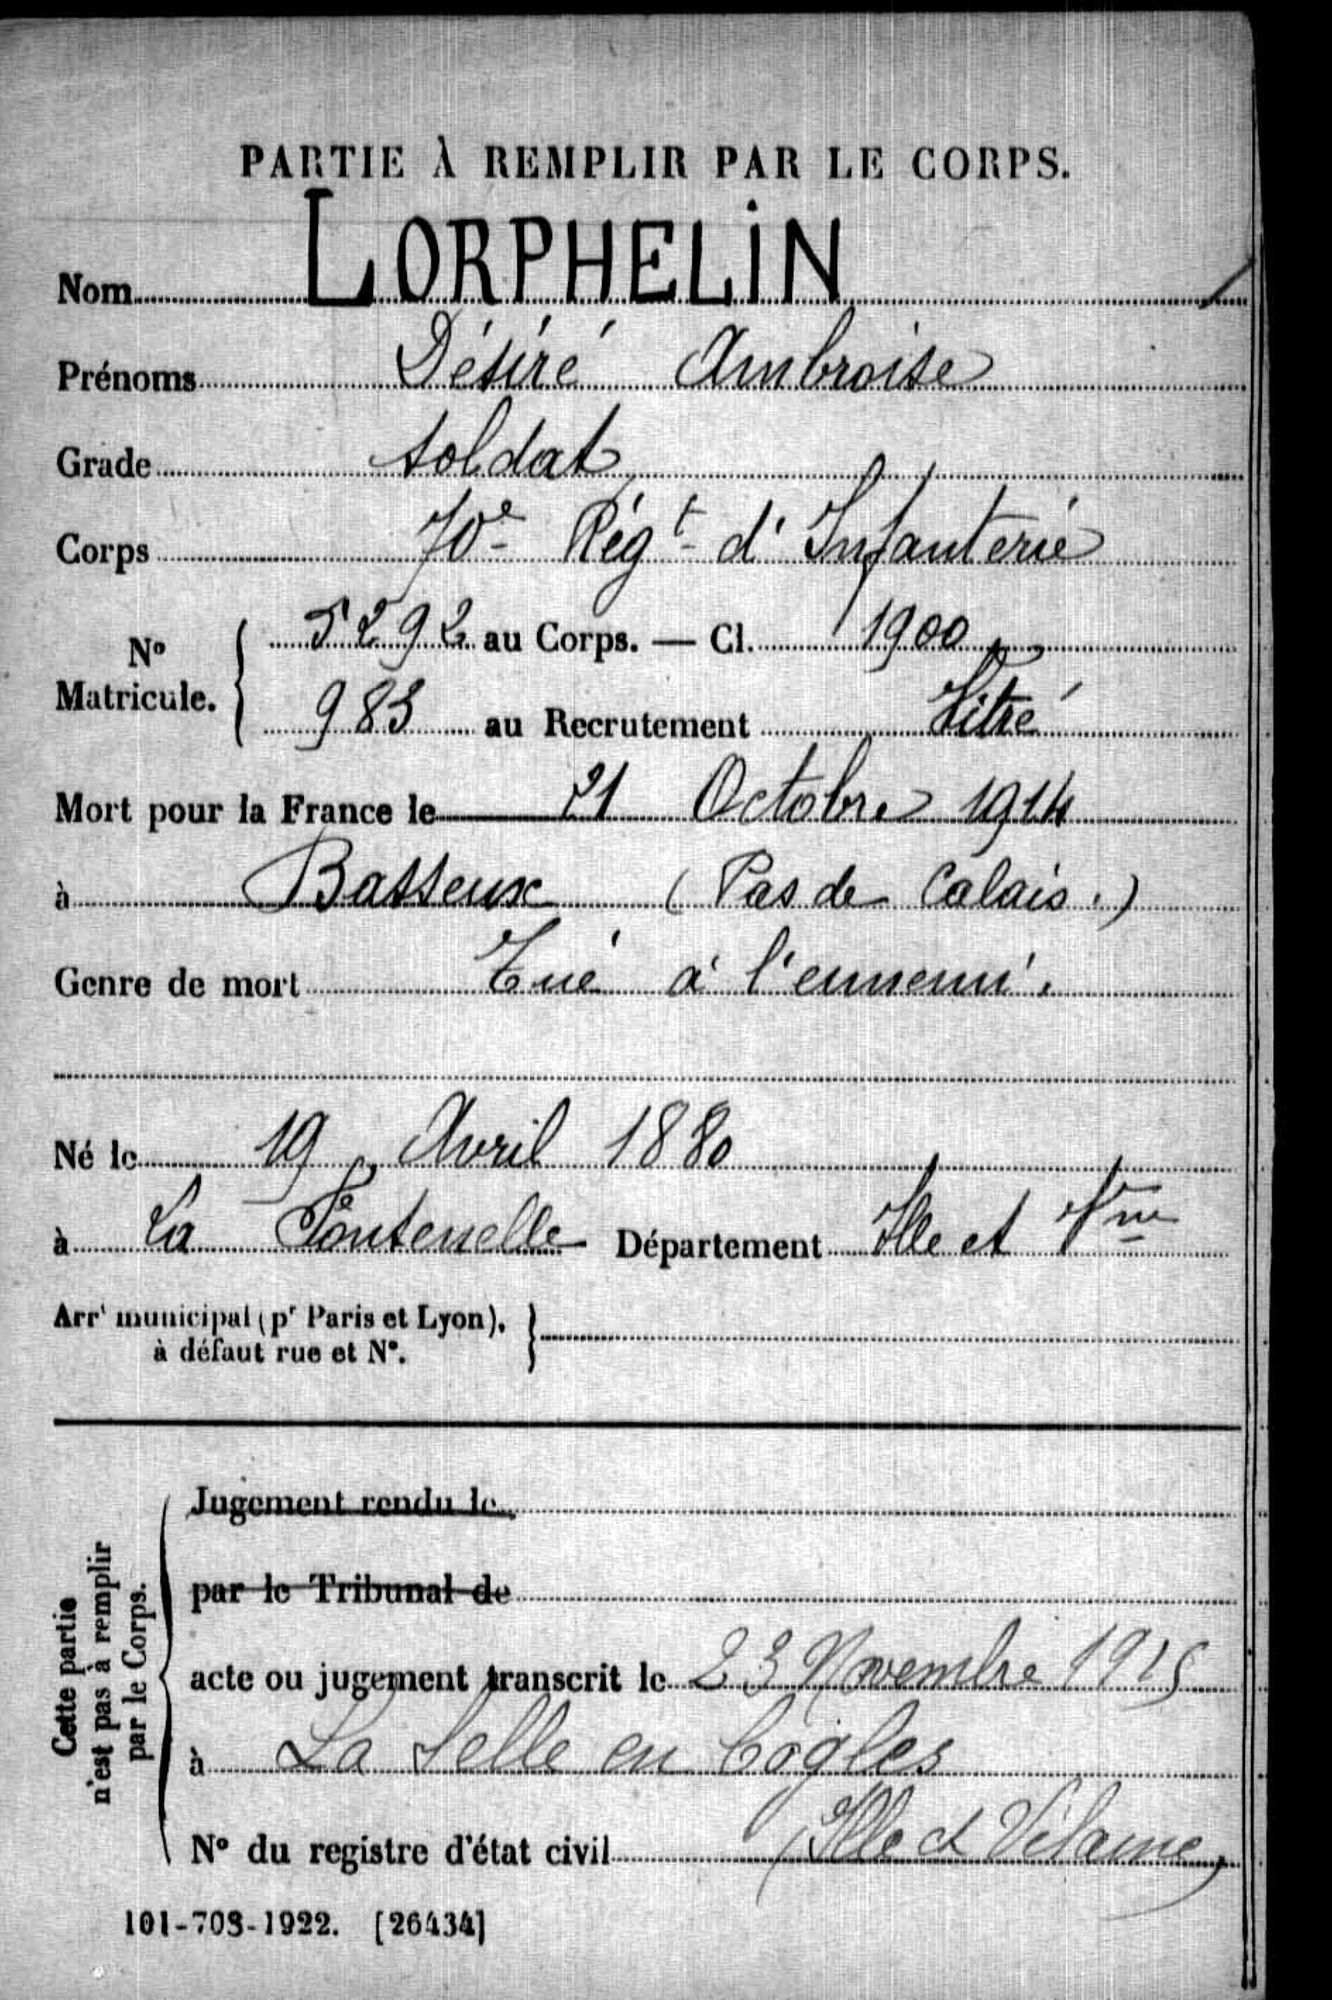 PARTIE À REMPLIR PAR LE CORPS.
Nom LORPHELIN
Prénoms Désiré Ambroise
Grade soldat
Corps 70e Régt d'Infanterie
No Matricule. { 5292 au Corps. — Cl. 1900
983 au Recrutement Vitré
Mort pour la France le 21 Octobre 1914
à Basseux (Pas de Calais.)
Genre de mort Tué à l'ennemi.
Né le 19 Avril 1880
à La Fontenelle Département Ille et Vne
Arrt municipal (pr Paris et Lyon), }
à défaut rue et No.
Cette partie
n'est pas à remplir
par le Corps.
Jugement rendu le
par le Tribunal de
acte ou jugement transcrit le 23 Novembre 1915
à La Selle en Cogles
(Ille et Vilaine)
No du registre d'état civil
101-708-1922. [26434]